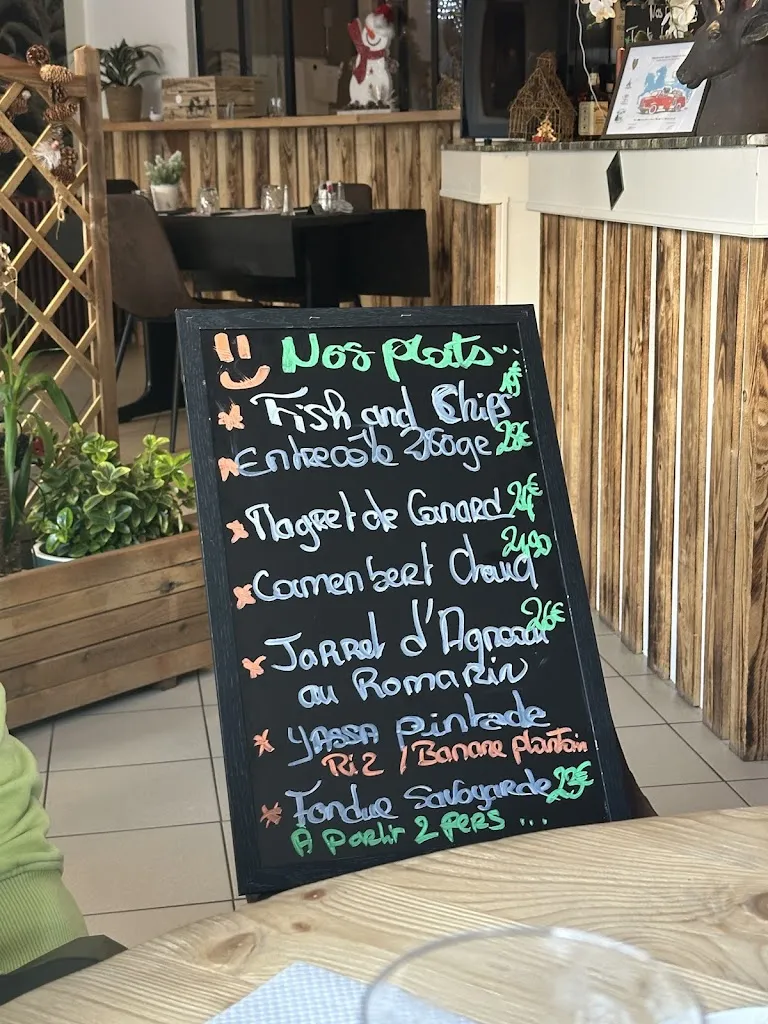 Nos plats
Fish and Chips
Entrecôte 28€
Magret de Canard
Camembert Chaud
Jarret d'Agneau 26€
au Romarin
YASSA pintade
Riz / Banane plantain
Fondue Savoyarde 23€
À Partir 2 pers ...